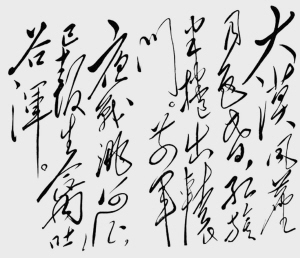 大漠风尘
日色昏，红旗
半捲出辕
门。前军
夜战洮河北，
已报生擒吐
谷浑。